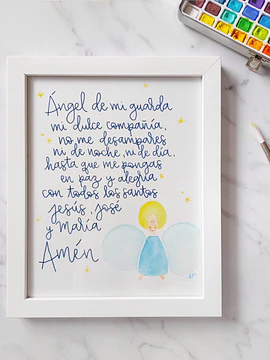 Ángel de mi guarda
mi dulce compañía,
no me desampares
ni de noche, ni de día,
hasta que me pongas
en paz y alegría
con todos los santos
jesús, josé
y maría
Amén